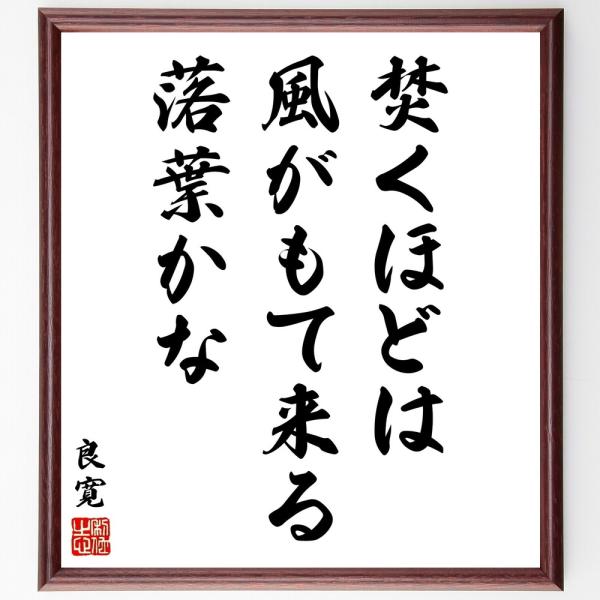 焚くほどは
風がもて来る
落葉かな
良寛